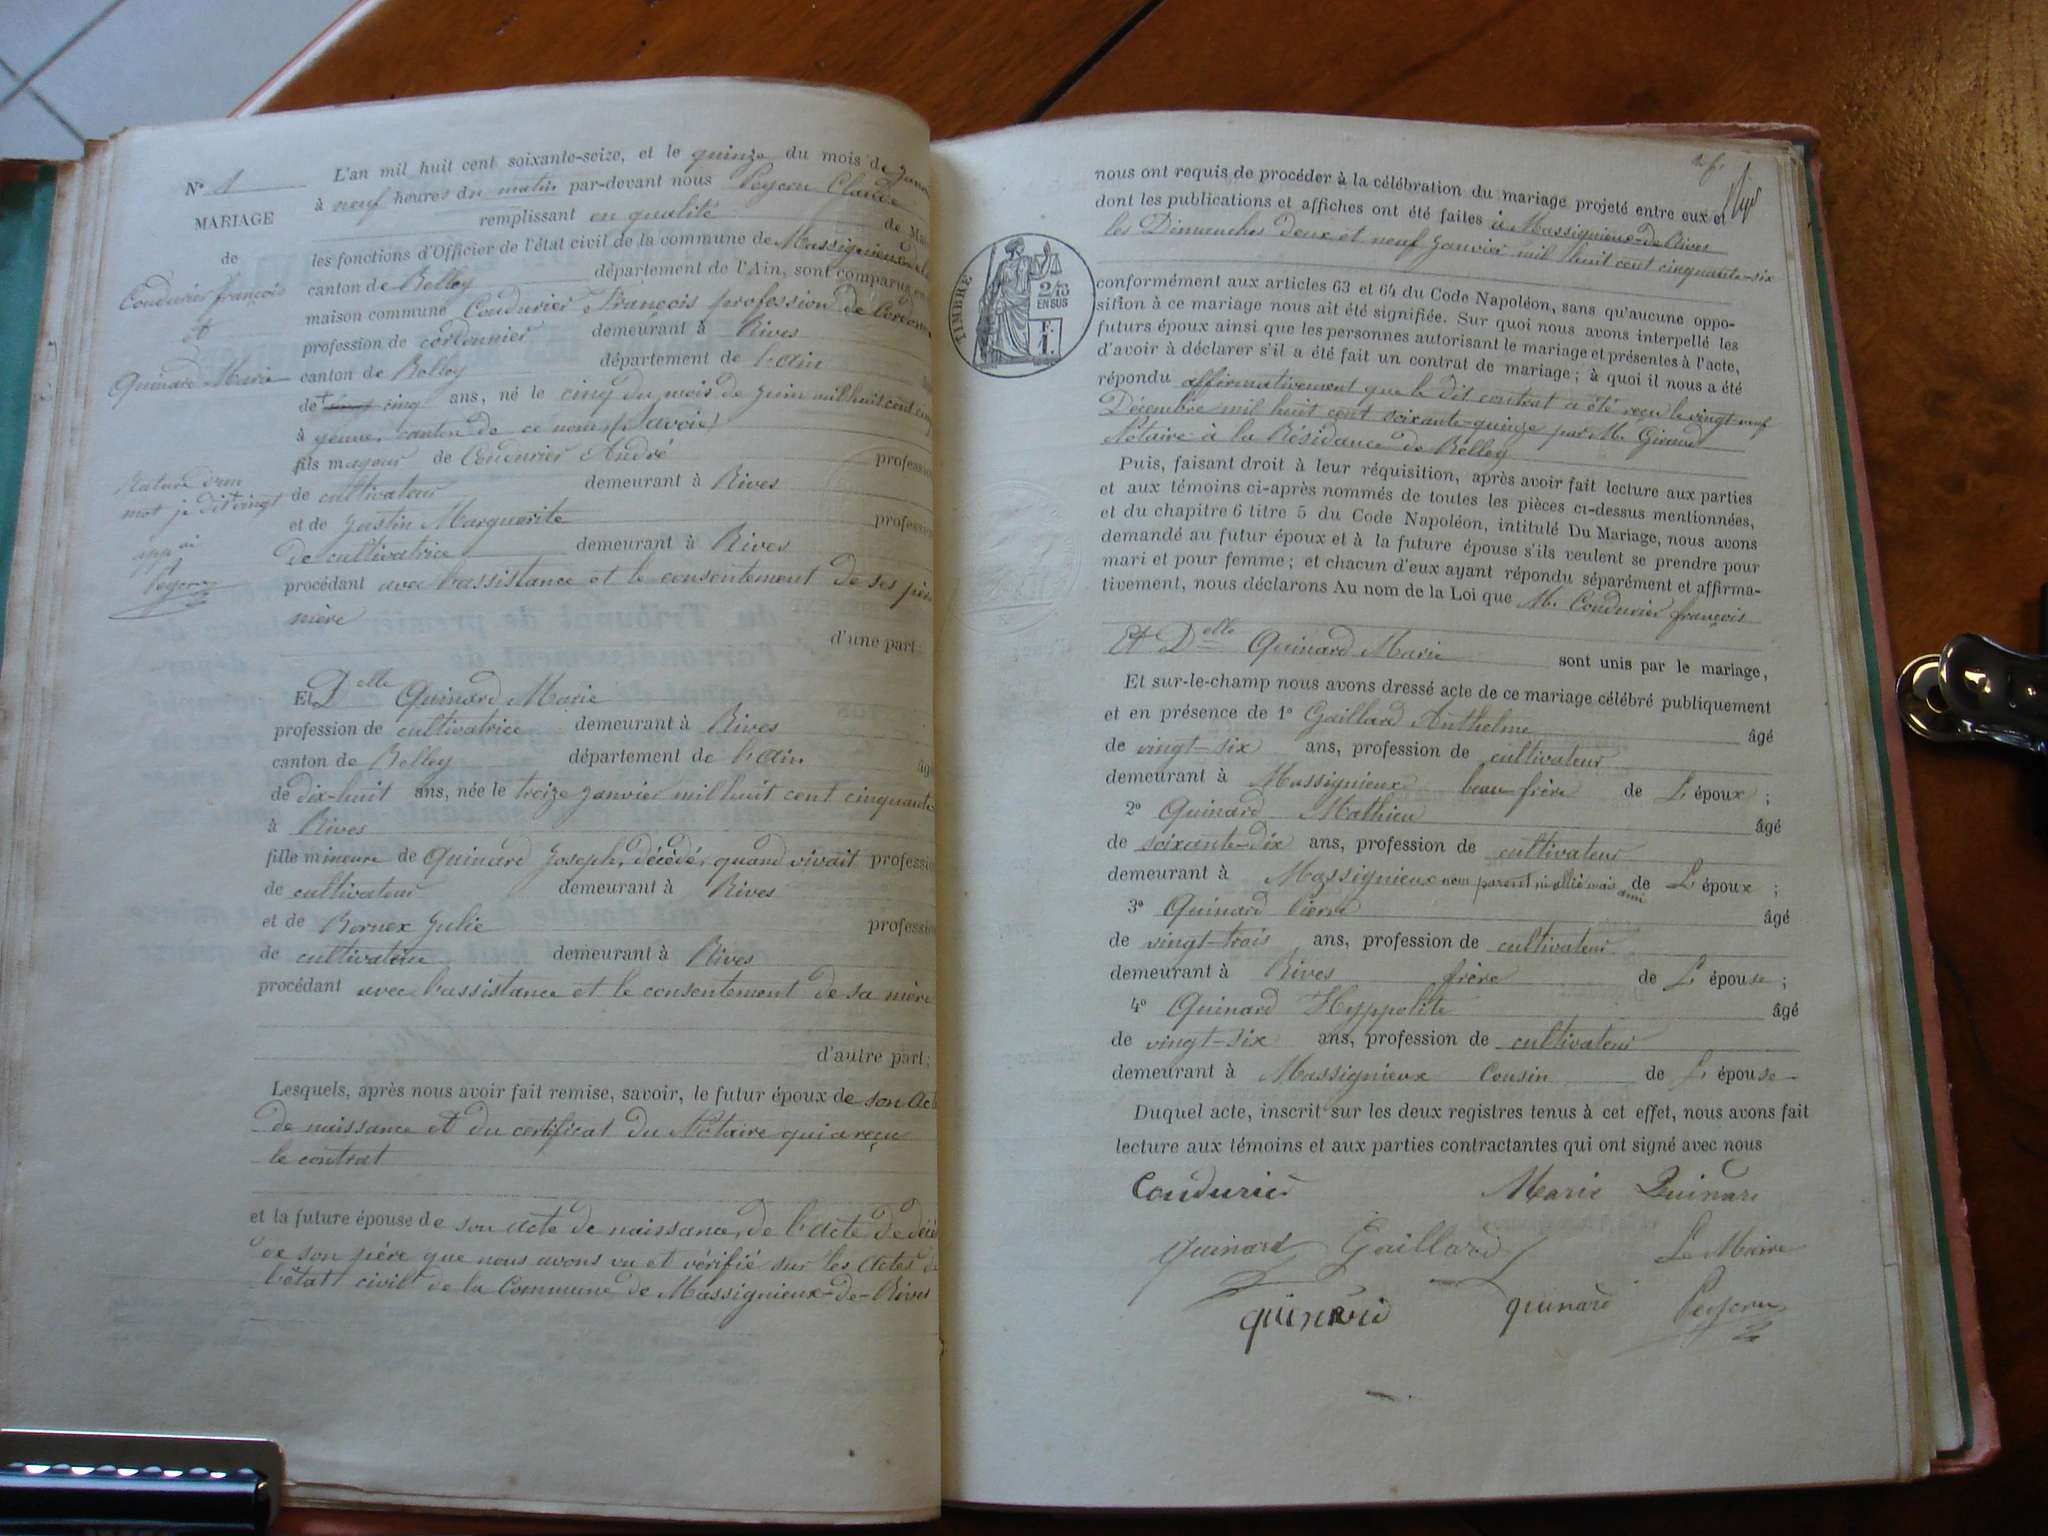 N° 1
MARIAGE
de
Condurier françois
et
Quinard Marie
Rature d'un
mot je dis + vingt
app ai
Peyron
L'an mil huit cent soixante-seize, et le quinze du mois de Janv
à neuf heures du matin par-devant nous Peyron Claude
remplissant en qualité de Mai
les fonctions d'Officier de l'état civil de la commune de Massignieux-de
canton de Belley département de l'Ain, sont comparus en
maison commune Condurier François profession de Cordonn
profession de cordonnier demeurant à Rives
canton de Belley département de l'ain
de + cinq ans, né le cinq du mois de Juin mil huit cent cinq
à yenne, canton de ce nom, (Savoie)
fils mageur de Condurier André profession
de cultivateur demeurant à Rives
et de Justin Marguerite profession
de cultivatrice demeurant à Rives
procédant avec l'assistance et le consentement de ses père
mère
d'une part;
Et Delle Quinard Marie
profession de cultivatrice demeurant à Rives
canton de Belley département de l'ain âg
de dix-huit ans, née le treize Janvier mil huit cent cinquante
à Rives
fille mineure de Quinard Joseph, décédé, quand vivait professio
de cultivateur demeurant à Rives
et de Bornex Julie professio
de cultivateur demeurant à Rives
procédant avec l'assistance et le consentement de sa mère
d'autre part;
Lesquels, après nous avoir fait remise, savoir, le futur époux de son Act
de naissance et du certificat du Notaire qui a reçu
le contrat
et la future épouse de son acte de naissance, de l'acte de décè
de son père que nous avons vu et vérifié sur les actes d
l'état civil de la Commune de Massignieux-de-Rives
nous ont requis de procéder à la célébration du mariage projeté entre eux et
dont les publications et affiches ont été faites à Massignieux-de-Rives
les Dimanches deux et neuf Janvier mil huit cent cinquante-six
TIMBRE
2/10
EN SUS
F.
1.
conformément aux articles 63 et 64 du Code Napoléon, sans qu'aucune oppo-
sition à ce mariage nous ait été signifiée. Sur quoi nous avons interpellé les
futurs époux ainsi que les personnes autorisant le mariage et présentes à l'acte,
d'avoir à déclarer s'il a été fait un contrat de mariage; à quoi il nous a été
répondu affirmativement que le dit contrat a été reçu le vingt neuf
Décembre mil huit cent soixante-quinze par M. Giraud
Notaire à la Résidance de Belley
Puis, faisant droit à leur réquisition, après avoir fait lecture aux parties
et aux témoins ci-après nommés de toutes les pièces ci-dessus mentionnées,
et du chapitre 6 titre 5 du Code Napoléon, intitulé Du Mariage, nous avons
demandé au futur époux et à la future épouse s'ils veulent se prendre pour
mari et pour femme; et chacun d'eux ayant répondu séparément et affirma-
tivement, nous déclarons Au nom de la Loi que M. Condurier françois
Et Delle Quinard Marie sont unis par le mariage,
Et sur-le-champ nous avons dressé acte de ce mariage célébré publiquement
et en présence de 1° Gaillard Anthelme âgé
de vingt-six ans, profession de cultivateur
demeurant à Massignieux beau frère de L'époux;
2° Quinard Mathieu âgé
de soixante-dix ans, profession de cultivateur
demeurant à Massignieux non parent ni allié mais ami de L'époux;
3° Quinard Pierre âgé
de vingt-trois ans, profession de cultivateur
demeurant à Rives frère de L'épouse;
4° Quinard Hyppolite âgé
de vingt-six ans, profession de cultivateur
demeurant à Massignieux Cousin de L'épouse
Duquel acte, inscrit sur les deux registres tenus à cet effet, nous avons fait
lecture aux témoins et aux parties contractantes qui ont signé avec nous
Condurier Marie Quinard
quinard Gaillard Le Maire
quinard quinard Peyron